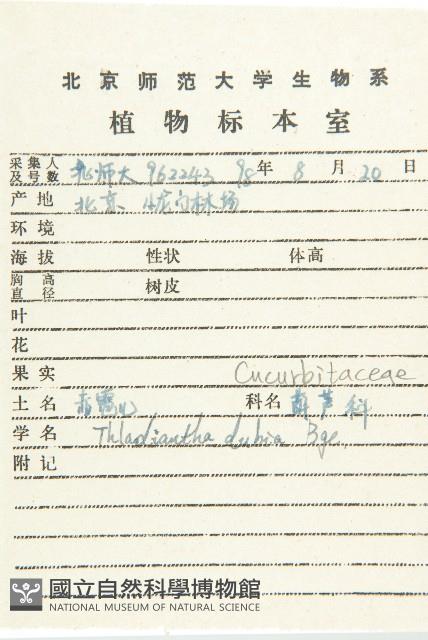 北京师范大学生物系
植物标本室
采集人及号数 北师大 962243 98年 8月 20日
产地 北京
环境
海拔 性状 体高
胸高直径 树皮
叶
花
果实 Cucurbitaceae
土名 赤雹儿 科名 葫芦科
学名 Thladiantha dubia Bge.
附记
國立自然科學博物館
NATIONAL MUSEUM OF NATURAL SCIENCE